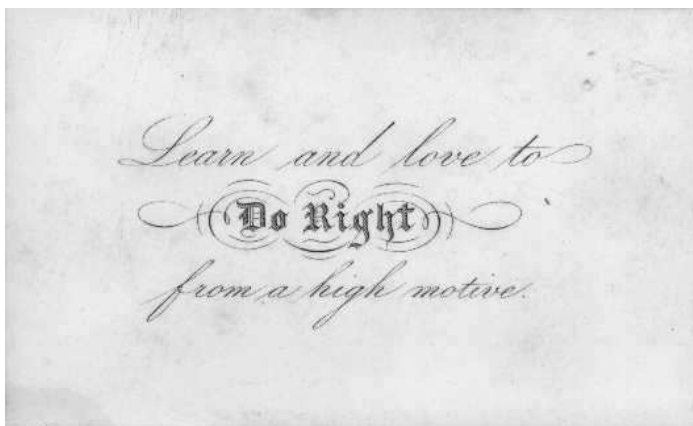 Learn and love to
Do Right
from a high motive.